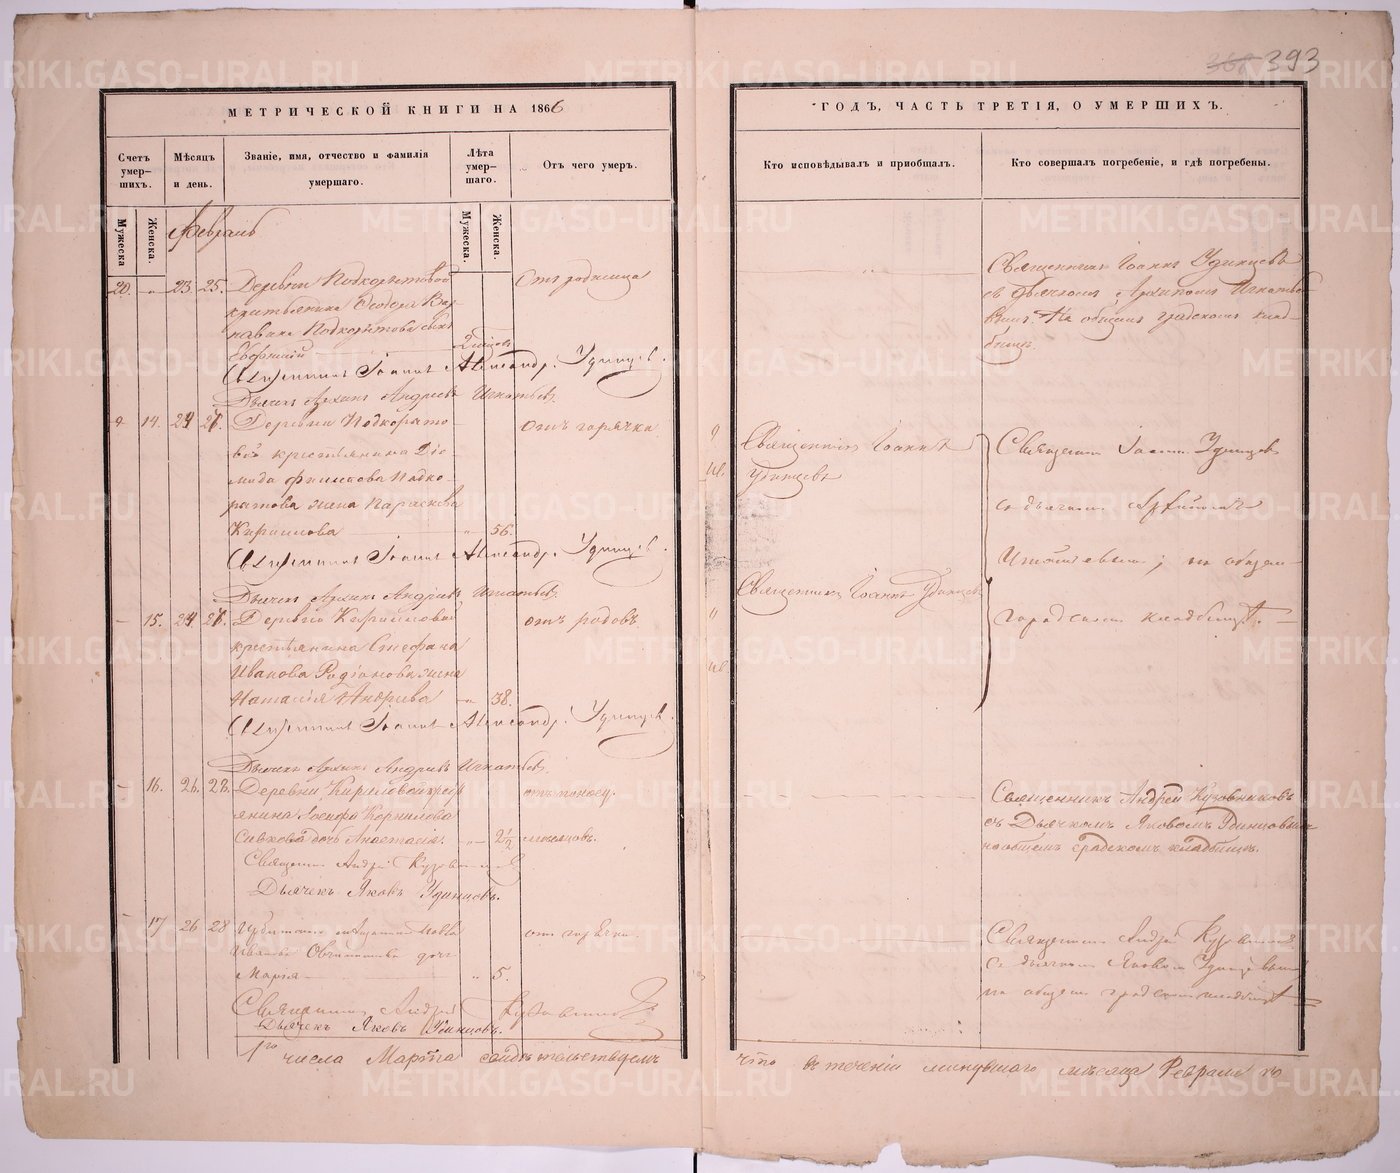 393
МЕТРИЧЕСКОЙ КНИГИ НА 1866
Счетъ умер-шихъ.
Мѣсяцъ и день.
Званіе, имя, отчество и фамилія умершаго.
Лѣта умер-шаго.
Отъ чего умеръ.
Мужеска
Женска.
Мужеска.
Женска.
Февраль
20. 23. 25. Деревни Подкорытовой
Подкорытова сынъ
Священникъ Іоаннъ Александр. Удинцевъ.
Дьячекъ Архипъ Андреевъ Игнатьевъ.
14. 24 Деревни Подкорыто-
вой крестьянина Діо-
мида Подко-
рытова жена Параскева
Кирилова 56.
Священникъ Іоаннъ Александр. Удинцевъ.
Дьячекъ Архипъ Андреевъ Игнатьевъ.
отъ горячки
15. 24 Деревни Кириловой
крестьянина Стефана
Иванова Родіонова жена
Наталія Андреева 38.
Священникъ Іоаннъ Александр. Удинцевъ.
Дьячекъ Архипъ Андреевъ Игнатьевъ.
отъ родовъ
16. 26. 28. Деревни Кириловой крест-
янина Іосифа Корнилова
дочь Анастасія. 2½ месяцовъ.
Священникъ Андрей Кузовников
Дьячекъ Яковъ Удинцовъ.
отъ поносу.
17 26 28
дочь
Марія 5.
Священникъ Андрей Кузовников
Дьячекъ Яковъ Удинцовъ.
отъ горячки.
1го числа Марта свидѣтельствуемъ
ГОДЪ, ЧАСТЬ ТРЕТІЯ, О УМЕРШИХЪ.
Кто исповѣдывалъ и пріобщалъ.
Кто совершалъ погребеніе, и гдѣ погребены.
Священникъ Іоаннъ Удинцевъ
съ дьячкомъ Архипомъ Игнатье-
вымъ. На общемъ градскомъ клад-
бищѣ.
Священникъ Іоаннъ
Удинцевъ
Священникъ Іоаннъ Удинцевъ
Священникъ Іоаннъ Удинцевъ
съ дьячкомъ Архипомъ
Игнатьевымъ; на общем
городскомъ кладбищѣ.
Священникъ Андрей Кузовниковъ
съ Дьячкомъ Яковомъ Удинцовымъ
на общемъ градскомъ кладбищѣ.
Священникъ Андрей Кузовников
съ дьячкомъ Яковомъ Удинцевымъ
на общем градскомъ кладбищѣ
что въ теченіи минувшаго мѣсяца Февраля
METRIKI.GASO-URAL.RU